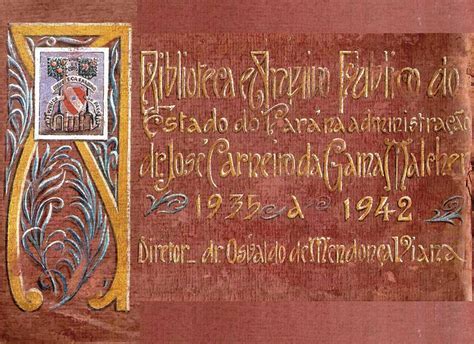 A Biblioteca e Arquivo Publico do
Estado do Pará na administração
dr. José Carneiro da Gama Malcher
1935 a 1942
Diretor_ dr. Osvaldo de Mendonça Viana